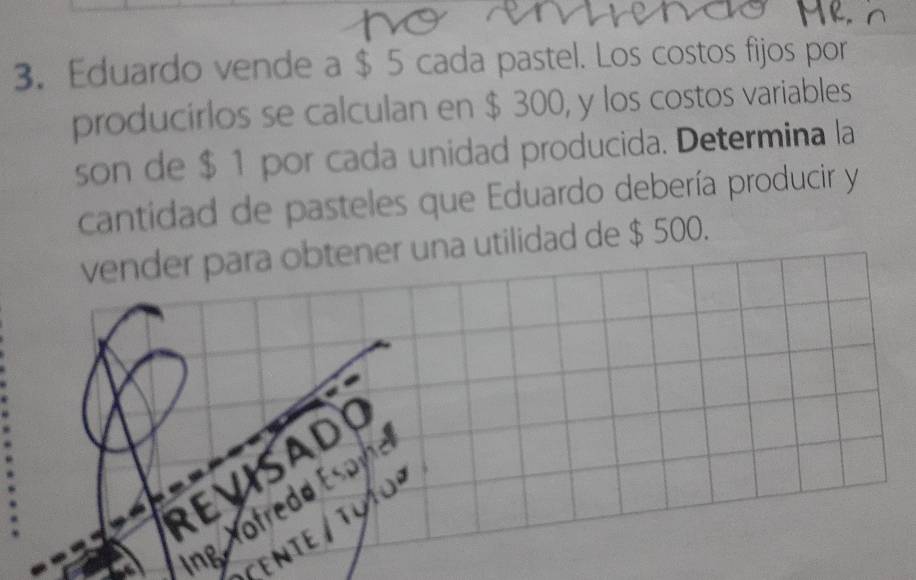 no entiendo Mr.
3. Eduardo vende a $ 5 cada pastel. Los costos fijos por
producirlos se calculan en $ 300, y los costos variables
son de $ 1 por cada unidad producida. Determina la
cantidad de pasteles que Eduardo debería producir y
vender para obtener una utilidad de $ 500.
REVISADO
Ing.